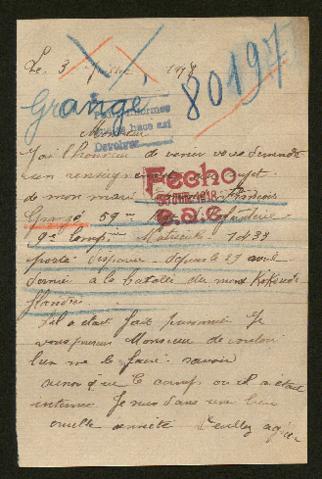 Le 3 1918
80197
Grange
Para informes
hace así
Devolver
Monsieur
J'ai l'honneur de venir vous demander
un renseignement au sujet
de mon mari François
Fecho
1918
Grange 59me Infanterie
9e Comp Matricule 1438
porté disparu depuis le 29 avril
dernier à la bataille du mont
Flandre
S'il était fait prisonnier Je
vous prierais Monsieur de vouloir
bien me le faire savoir
ainsi que le camps ou il était
interné Je suis dans une bien
cruelle anxiété Veuillez agréer